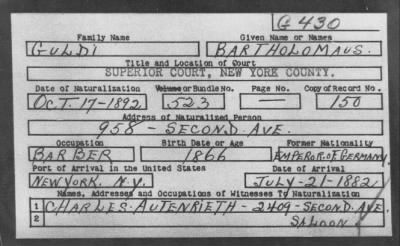 G 430
Family Name Given Name or Names
GULDI BARTHOLOMAUS.
Title and Location of Court
SUPERIOR COURT, NEW YORK COUNTY.
Date of Naturalization Volume or Bundle No. Page No. Copy of Record No.
OCT. 17-1892. 523 — 150
Address of Naturalized Person
958 - SECOND. AVE.
Occupation Birth Date or Age Former Nationality
BARBER 1866 EMPEROR OF GERMANY
Port of Arrival in the United States Date of Arrival
NEW YORK. N.Y. JULY-21-1882
Names, Addresses and Occupations of Witnesses To Naturalization
1 CHARLES. AUTENRIETH - 2409 - SECOND. AVE.
2 SALOON